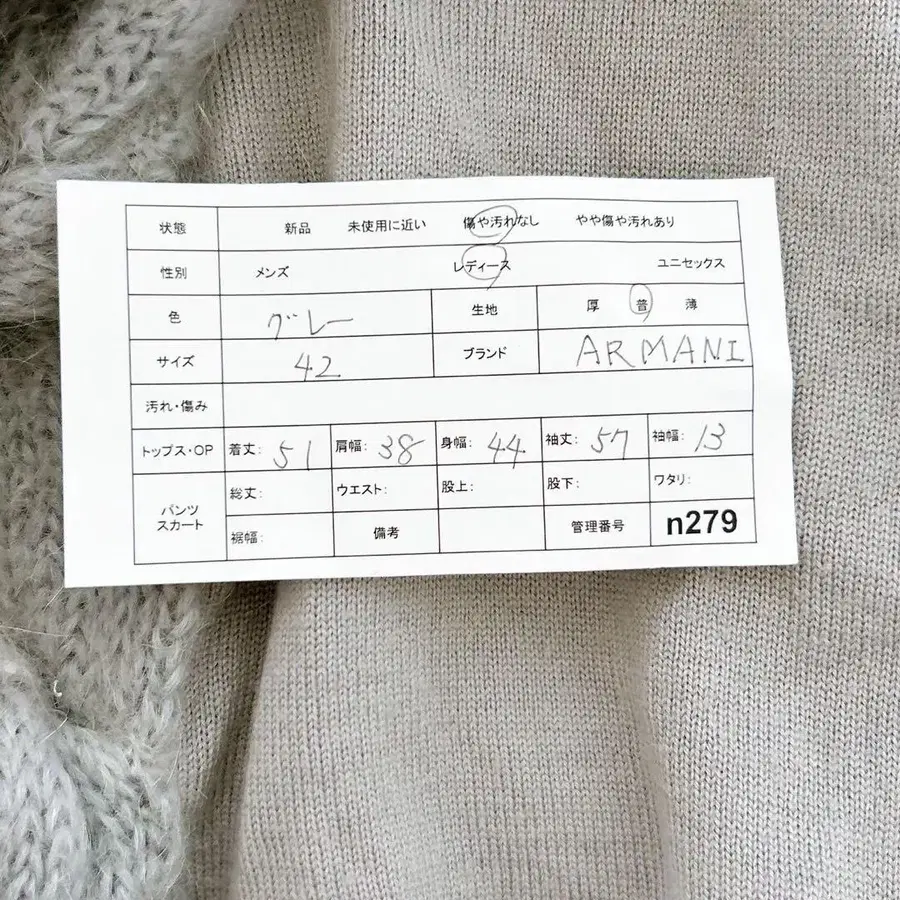 状態 新品 未使用に近い 傷や汚れなし やや傷や汚れあり
性別 メンズ レディース ユニセックス
色 グレー 生地 厚 普 薄
サイズ 42 ブランド ARMANI
汚れ・傷み
トップス・OP 着丈: 51 肩幅: 38 身幅: 44 袖丈: 57 袖幅: 13
パンツ スカート 総丈: ウエスト: 股上: 股下: ワタリ:
裾幅: 備考 管理番号 n279